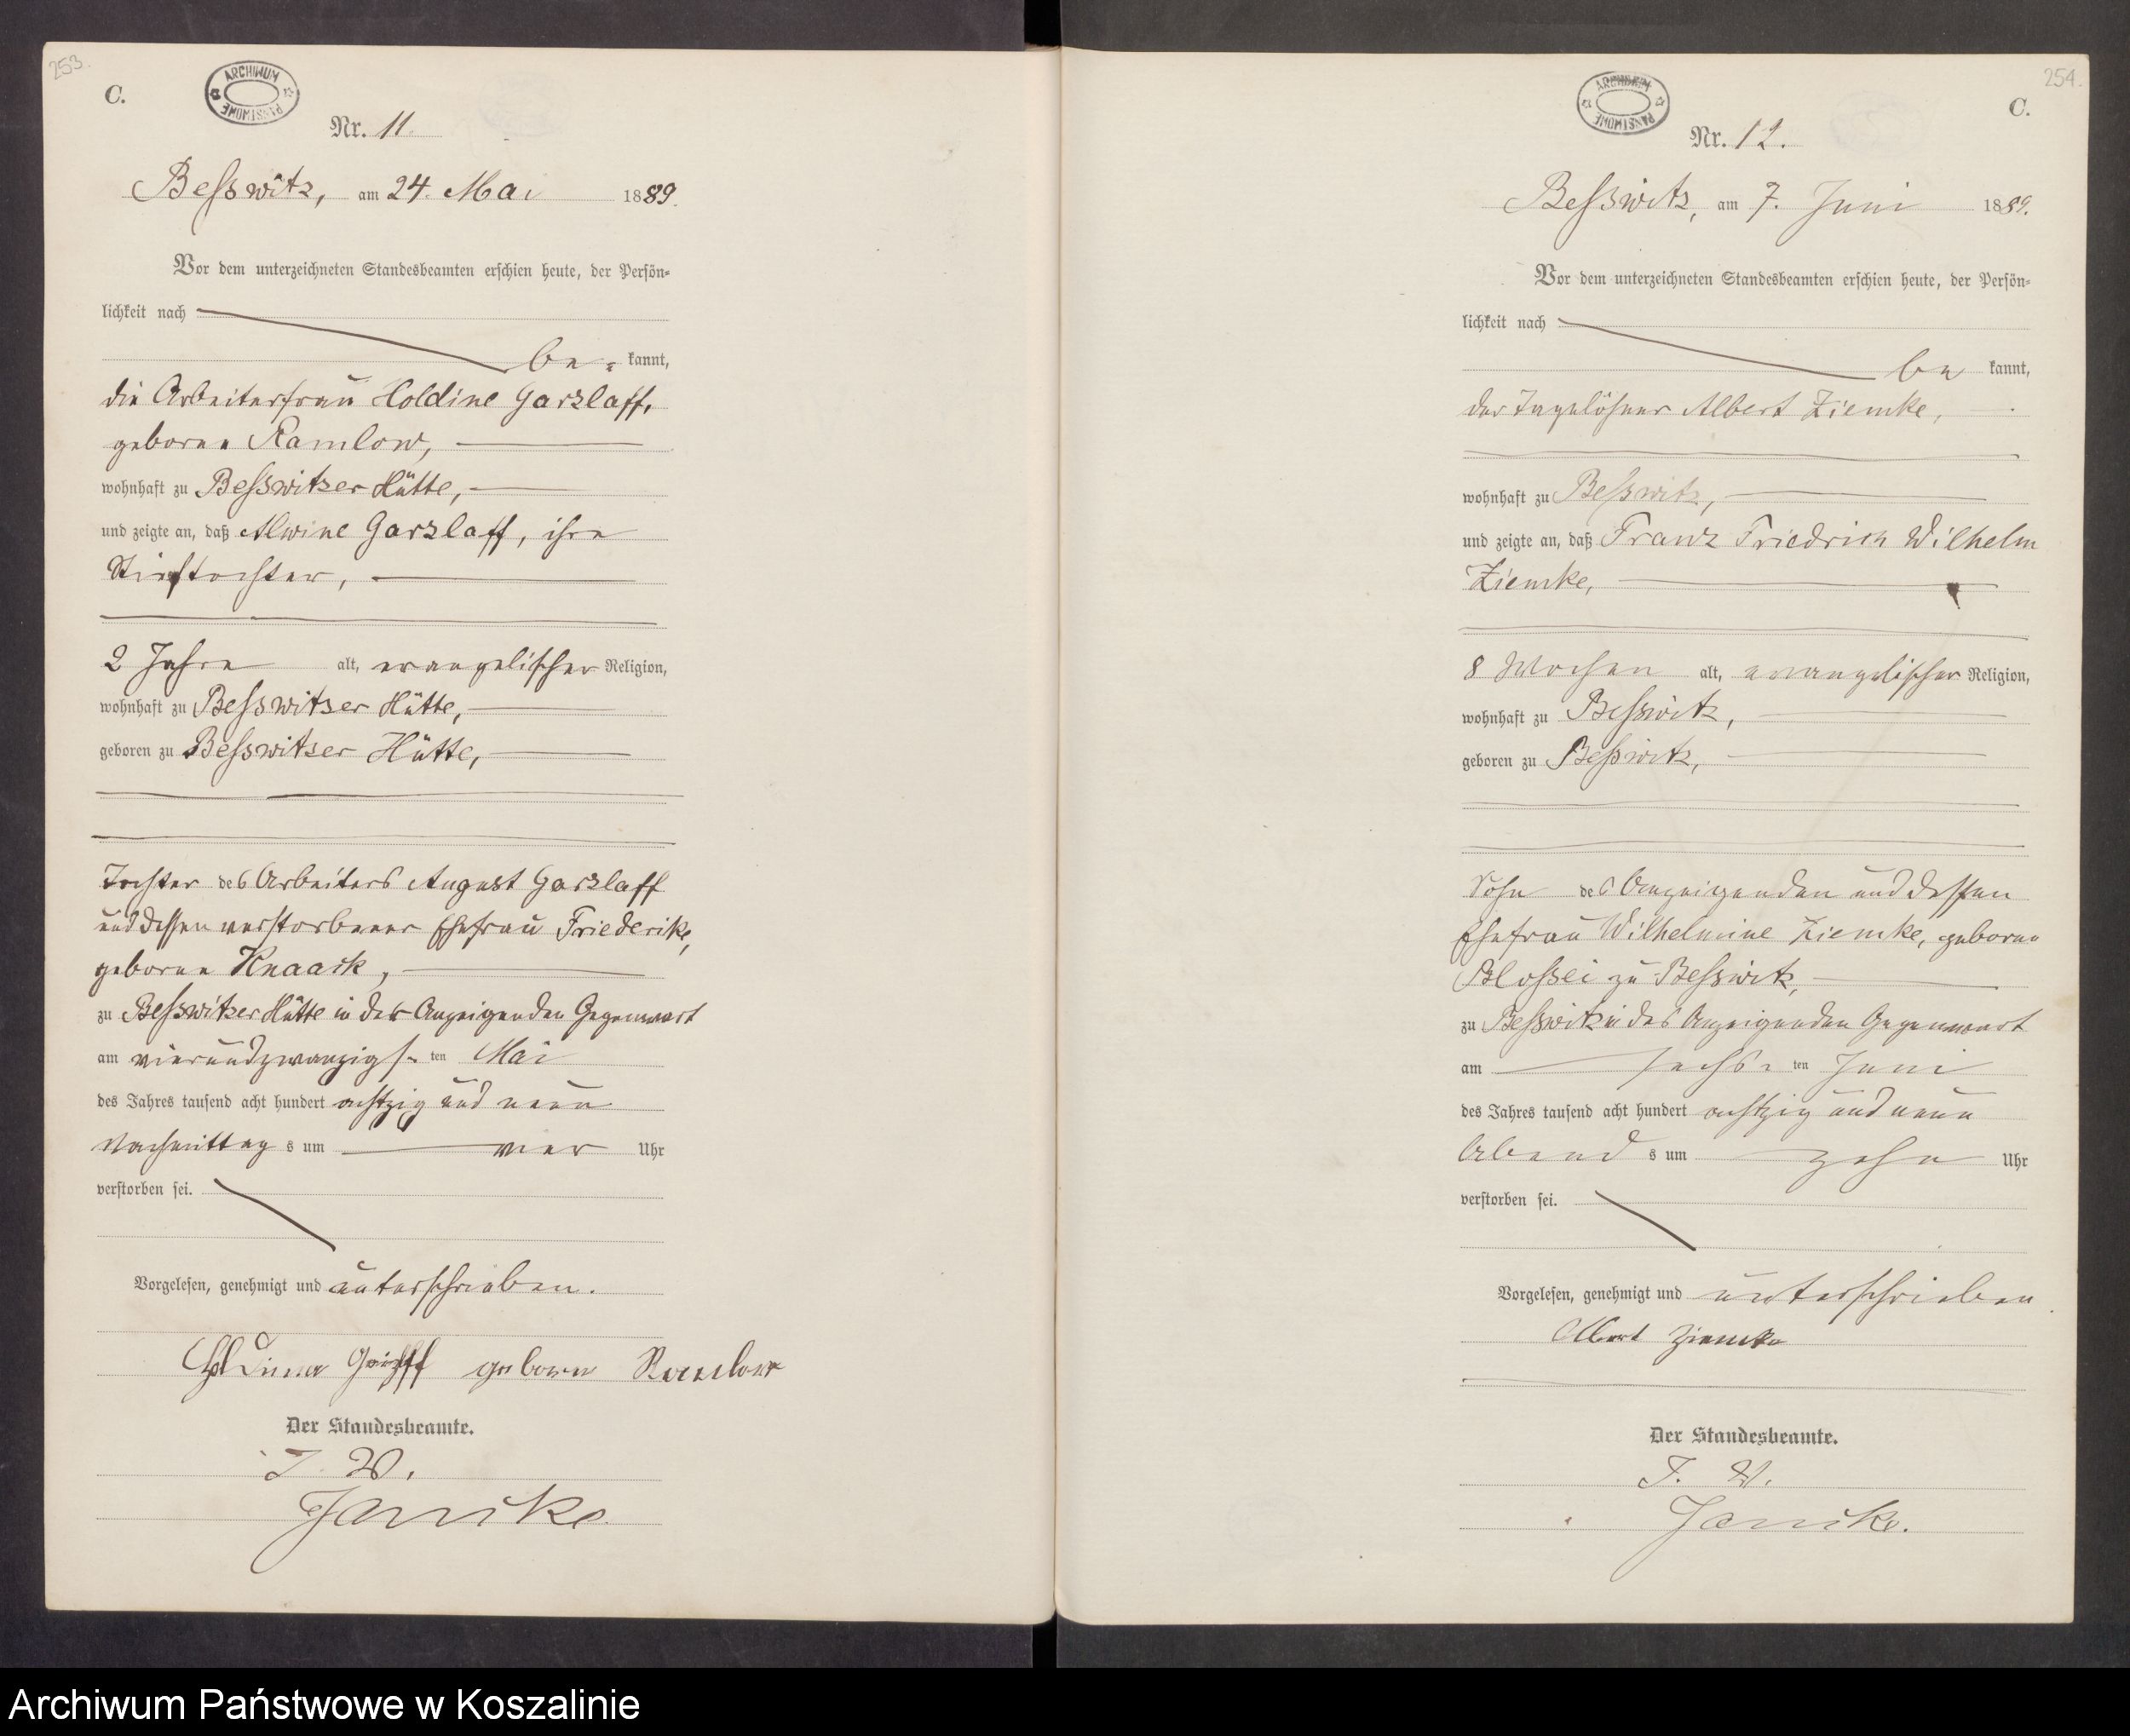 253.
C.
ARCHIWUM
PAŃSTWOWE
Nr. 11.
Besswitz, am 24. Mai 1889.
Vor dem unterzeichneten Standesbeamten erschien heute, der Persön-
lichkeit nach
be- kannt,
die Arbeiterfrau Holdine Garzlaff,
geborne Ramlow,
wohnhaft zu Besswitzer Hütte,
und zeigte an, daß Alwine Garzlaff, ihre
Stieftochter,
2 Jahre alt, evangelischer Religion,
wohnhaft zu Besswitzer Hütte,
geboren zu Besswitzer Hütte,
Tochter des Arbeiters August Garzlaff
und dessen verstorbener Ehefrau Friederike,
geborne Knaack,
zu Besswitzer Hütte in der Anzeigenden Gegenwart
am vierundzwanzigs- ten Mai
des Jahres tausend acht hundert achtzig und neun
Nachmittag s um vier Uhr
verstorben sei.
Vorgelesen, genehmigt und unterschrieben.
Holdine geborne Ramlow
Der Standesbeamte.
J. V.
Janike
254.
C.
ARCHIWUM
PAŃSTWOWE
Nr. 12.
Besswitz, am 7. Juni 1889.
Vor dem unterzeichneten Standesbeamten erschien heute, der Persön-
lichkeit nach
be kannt,
der Tagelöhner Albert Ziemke,
wohnhaft zu Besswitz,
und zeigte an, daß Franz Friedrich Wilhelm
Ziemke,
8 Wochen alt, evangelischer Religion,
wohnhaft zu Besswitz,
geboren zu Besswitz,
Sohn des Anzeigenden und dessen
Ehefrau Wilhelmine Ziemke, geborne
Blossei zu Besswitz,
zu Besswitz in des Anzeigenden Gegenwart
am sechs- ten Juni
des Jahres tausend acht hundert achtzig und neun
Abend s um zehn Uhr
verstorben sei.
Vorgelesen, genehmigt und unterschrieben
Albert Ziemke
Der Standesbeamte.
J. V.
Janike.
Archiwum Państwowe w Koszalinie